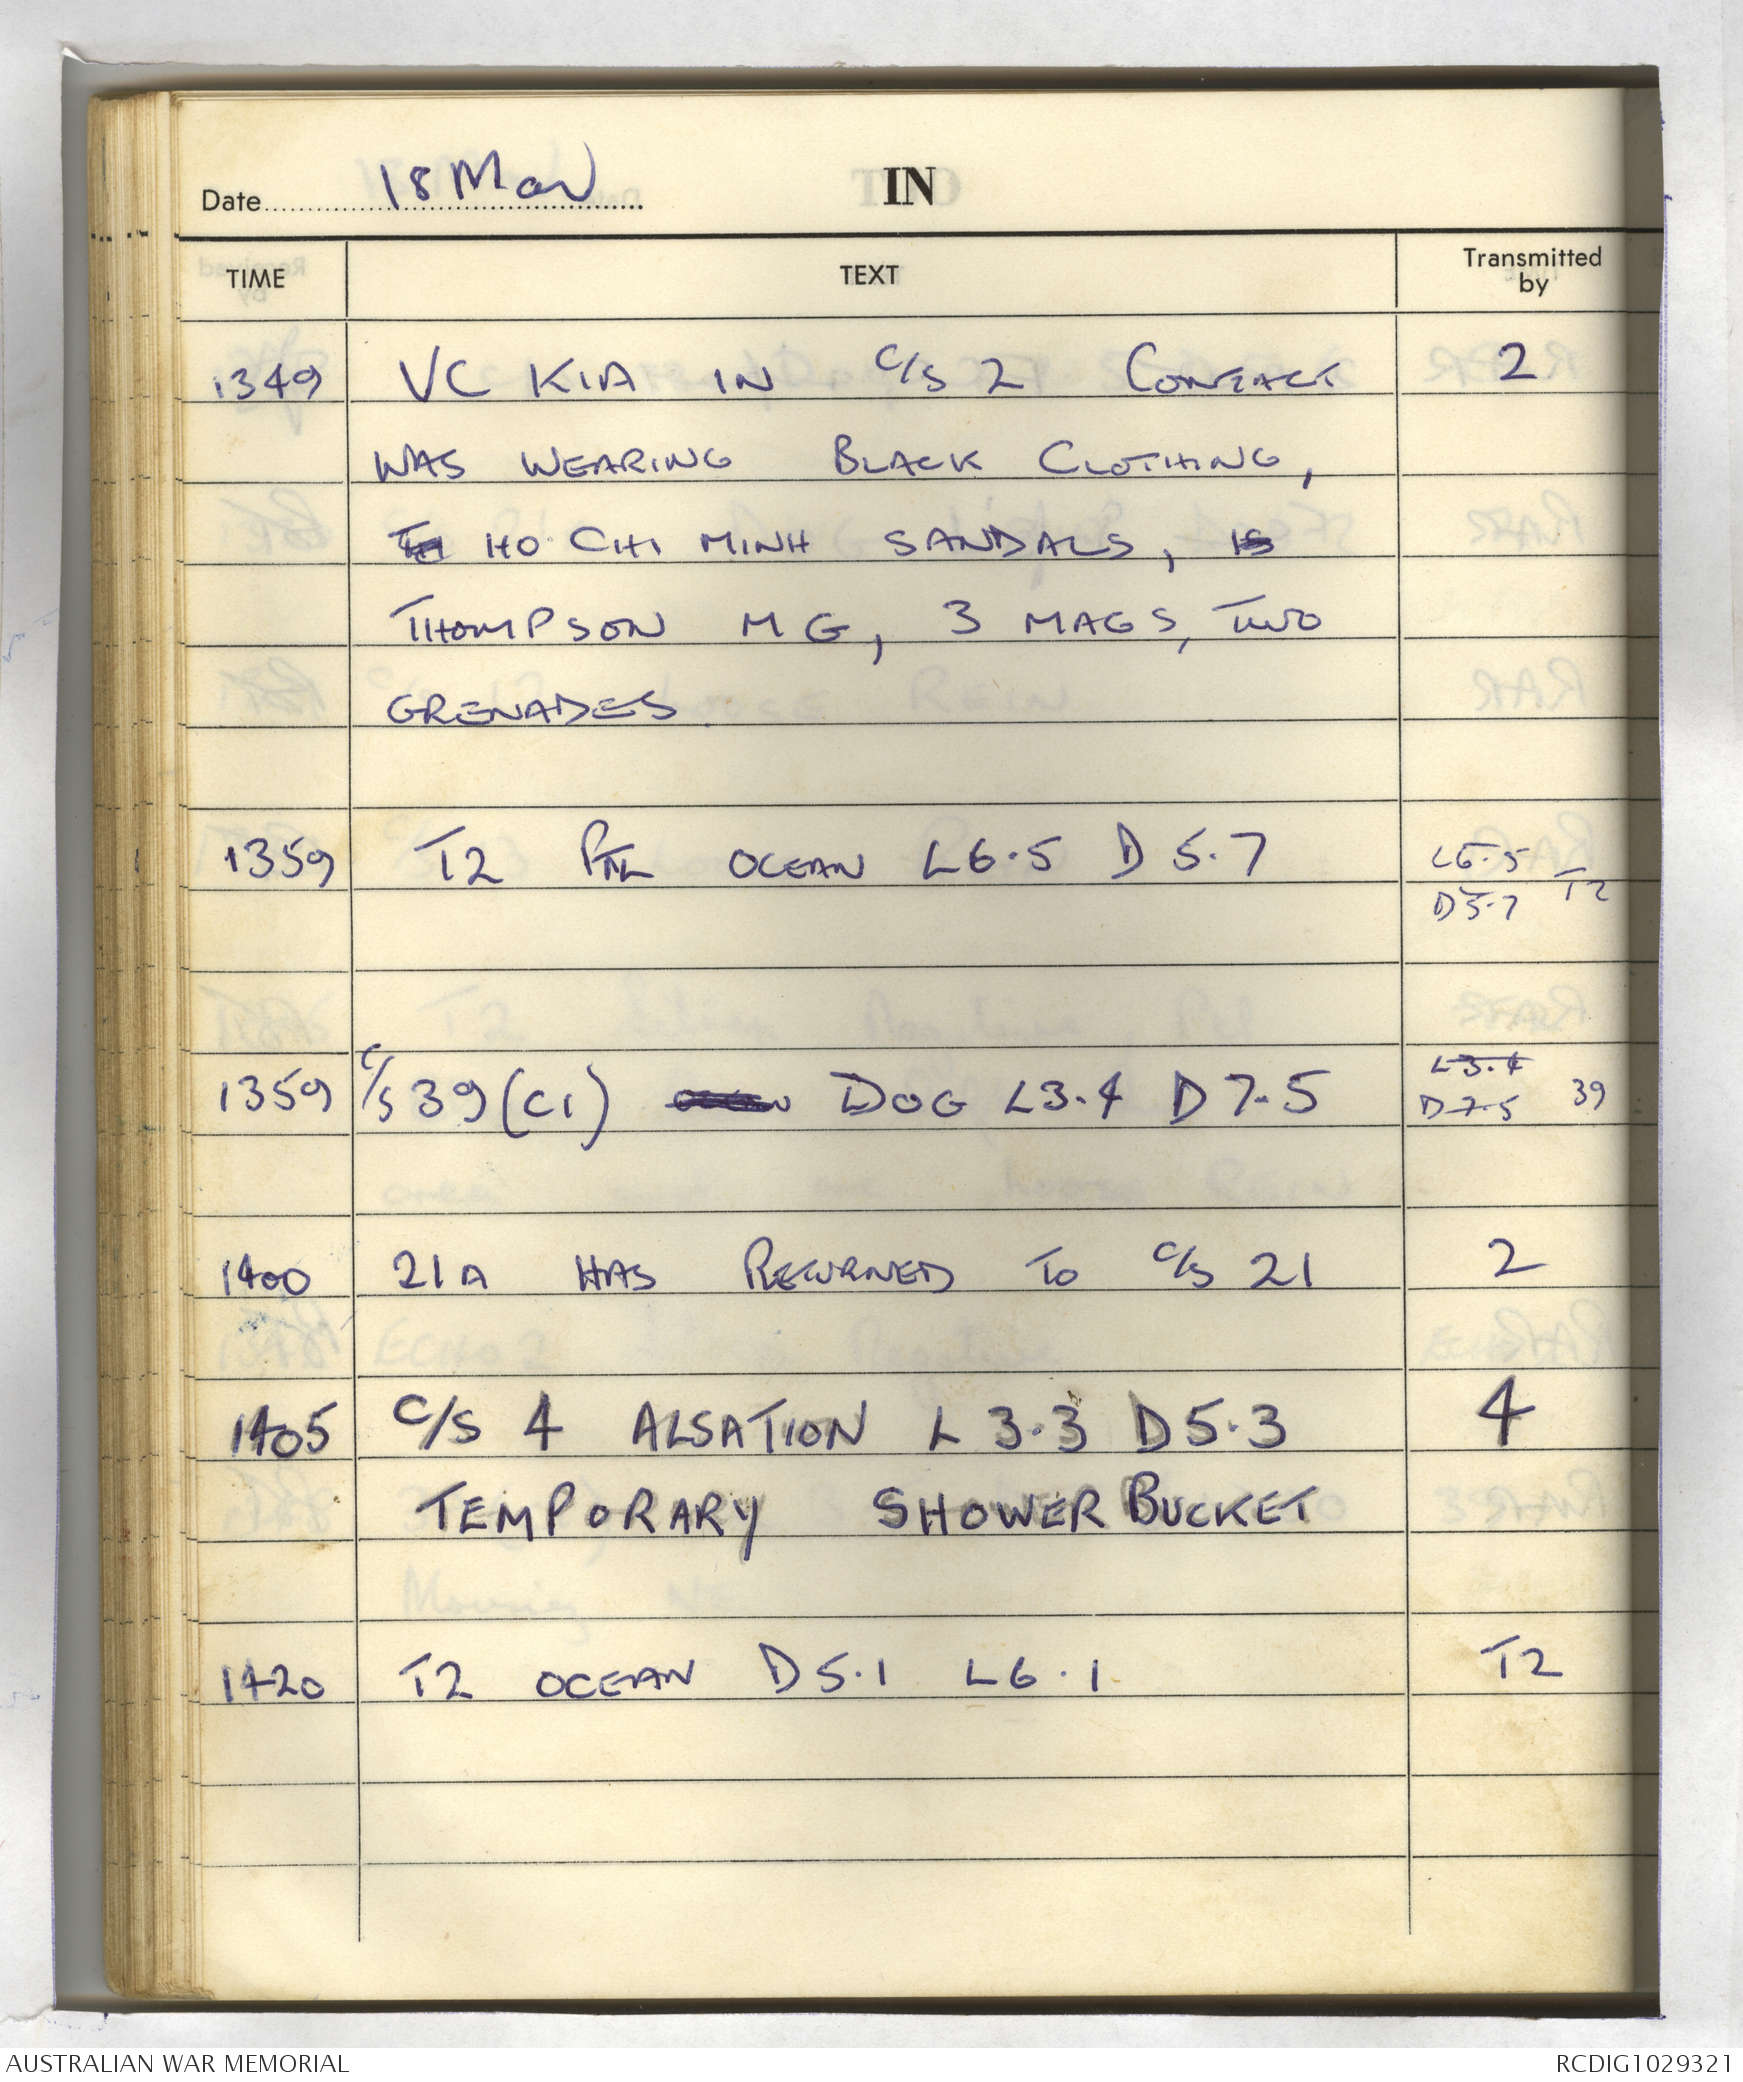 Date 18 Mar IN
TIME TEXT Transmitted by
1349 VC KIA IN C/S 2 CONTACT 2
WAS WEARING BLACK CLOTHING,
HO CHI MINH SANDALS,
THOMPSON MG, 3 MAGS, TWO
GRENADES.
1359 T2 PTL OCEAN L6.5 D 5.7 L6.5 T2
D5.7
1359 C/S 39 (C1) DOG L3.4 D7.5 L3.4 39
D7.5
1400 21A HAS RETURNED TO C/S 21 2
1405 C/S 4 ALSATION L 3.3 D5.3 4
TEMPORARY SHOWER BUCKET
1420 T2 OCEAN D5.1 L6.1 T2
AUSTRALIAN WAR MEMORIAL RCDIG1029321